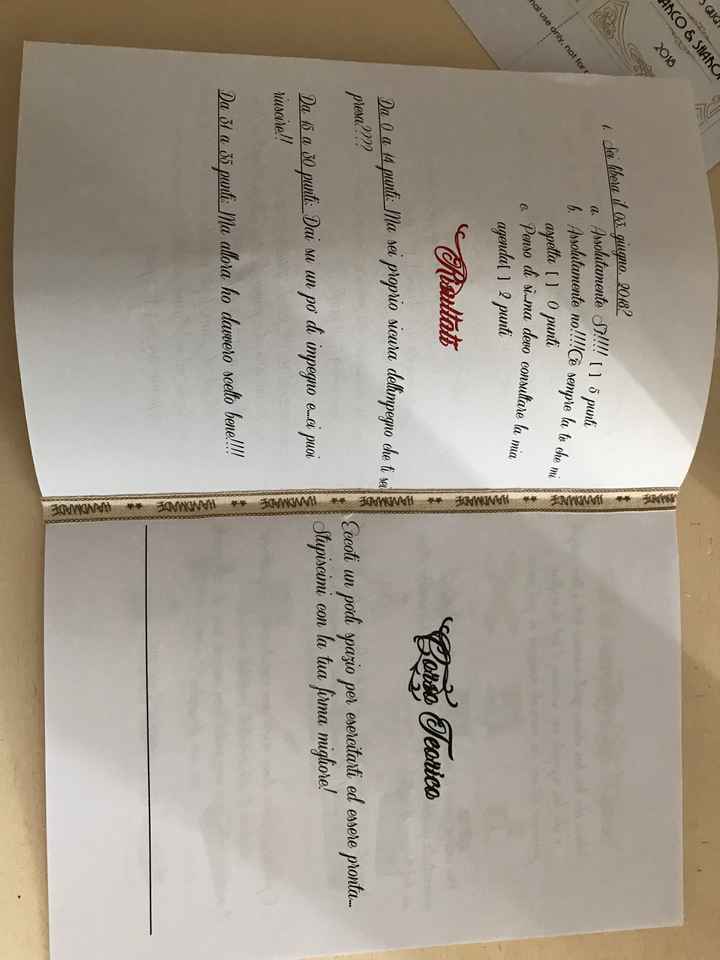 1. Sei libera il 03 giugno 2018?
a. Assolutamente Sì!!!! [ ] 5 punti
b. Assolutamente no!!!!C'è sempre la tv che mi
aspetta [ ] 0 punti
c. Penso di sì...ma devo consultare la mia
agenda[ ] 2 punti
Risultati
Da 0 a 14 punti: Ma sei proprio sicura dell'impegno che ti sei
presa????
Da 15 a 30 punti: Dai su un po' di impegno e...ci puoi
riuscire!!
Da 31 a 35 punti: Ma allora ho davvero scelto bene!!!!
HANDMADE ** HANDMADE ** HANDMADE ** HANDMADE ** HANDMADE ** HANDMADE ** HANDMADE
Corso Teorico
Eccoti un po'di spazio per esercitarti ed essere pronta...
Stupiscimi con la tua firma migliore!
2018
nal use only, not for